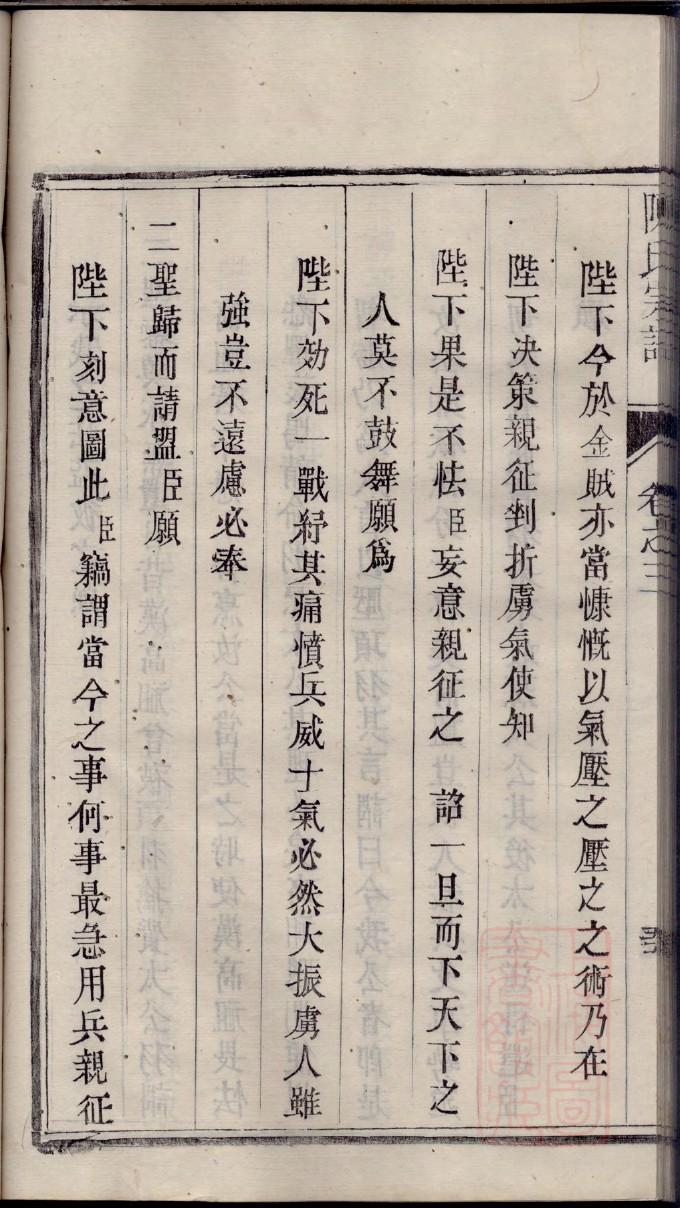 陳氏家譜
卷之三
陛下今於金賊亦當慷慨以氣壓之壓之之術乃在
陛下决策親征剉折虜氣使知
陛下果是不怯臣妄意親征之 詔一旦而下天下之
人莫不鼓舞願爲
陛下効死一戰紓其痛憤兵威士氣必然大振虜人雖
強豈不遠慮必奉
二聖歸而請盟臣願
陛下刻意圖此臣竊謂當今之事何事最急用兵親征